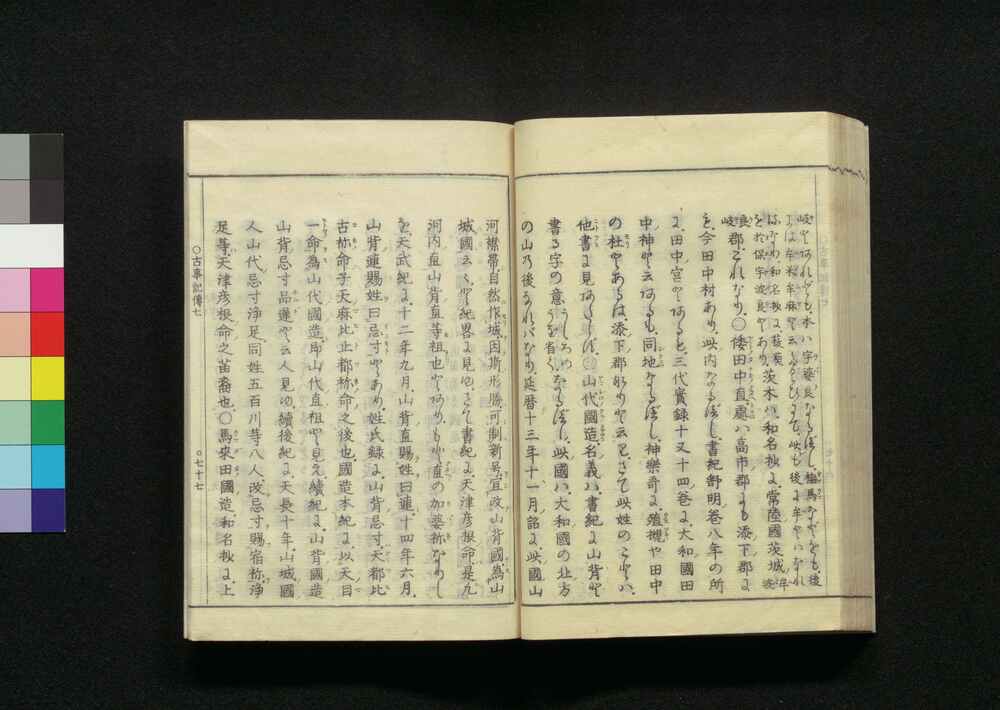 岐とあれども、本ハ字婆良なるべし、梅馬などをも、後
には牟米牟麻と云るたぐひにて、此も後に牟とハなれ
るなり、和名抄に、茨木、和名抄に、常陸國茨城
を於保宇波良とあり、
良郡、これなり、〇倭田中直ハ、高市郡にも添下郡に
も、今田中村あり、此内なるべし、書紀舒明卷八年の所
に、田中宮とあるも、三代實録十又十四卷に、大和國田
中神と云あるも、同地なるべし、神樂哥に、殖槻や田中
の杜とあるは、添下郡なりと云り、さて此姓のことハ、
他書に見あたらず、〇山代國造、名義ハ、書紀に山背と
書る字の意うしろのうを省く、なるべし、此國ハ大和國の北方
の山の後なれバなり、延暦十三年十一月詔に、此國山
河襟帶、自然作城、因斯形勝、可制新号、宜改山背國為山
城國云々と、紀畧に見ゆ、さて書紀に、天津彦根命、是凡
河内直山背直等祖也とあり、
を、天武紀に、十二年九月、山背直賜姓曰連、十四年六月、
山背連賜姓曰忌寸とあり、姓氏録に、山背忌寸、天都比
古祢命子天麻比止都祢命之後也、國造本紀に、以天目
一命為山代國造、即山代直祖と見え、續紀に、山背國造
山背忌寸品遲と云人見ゆ、續後紀に、天長十年、山城國
人山代忌寸淨足、同姓五百川等八人、改忌寸賜宿祢、淨
足等、天津彦根命之苗裔也、〇馬來田國造、和名抄に、上
〇古事記傳七
〇七十七